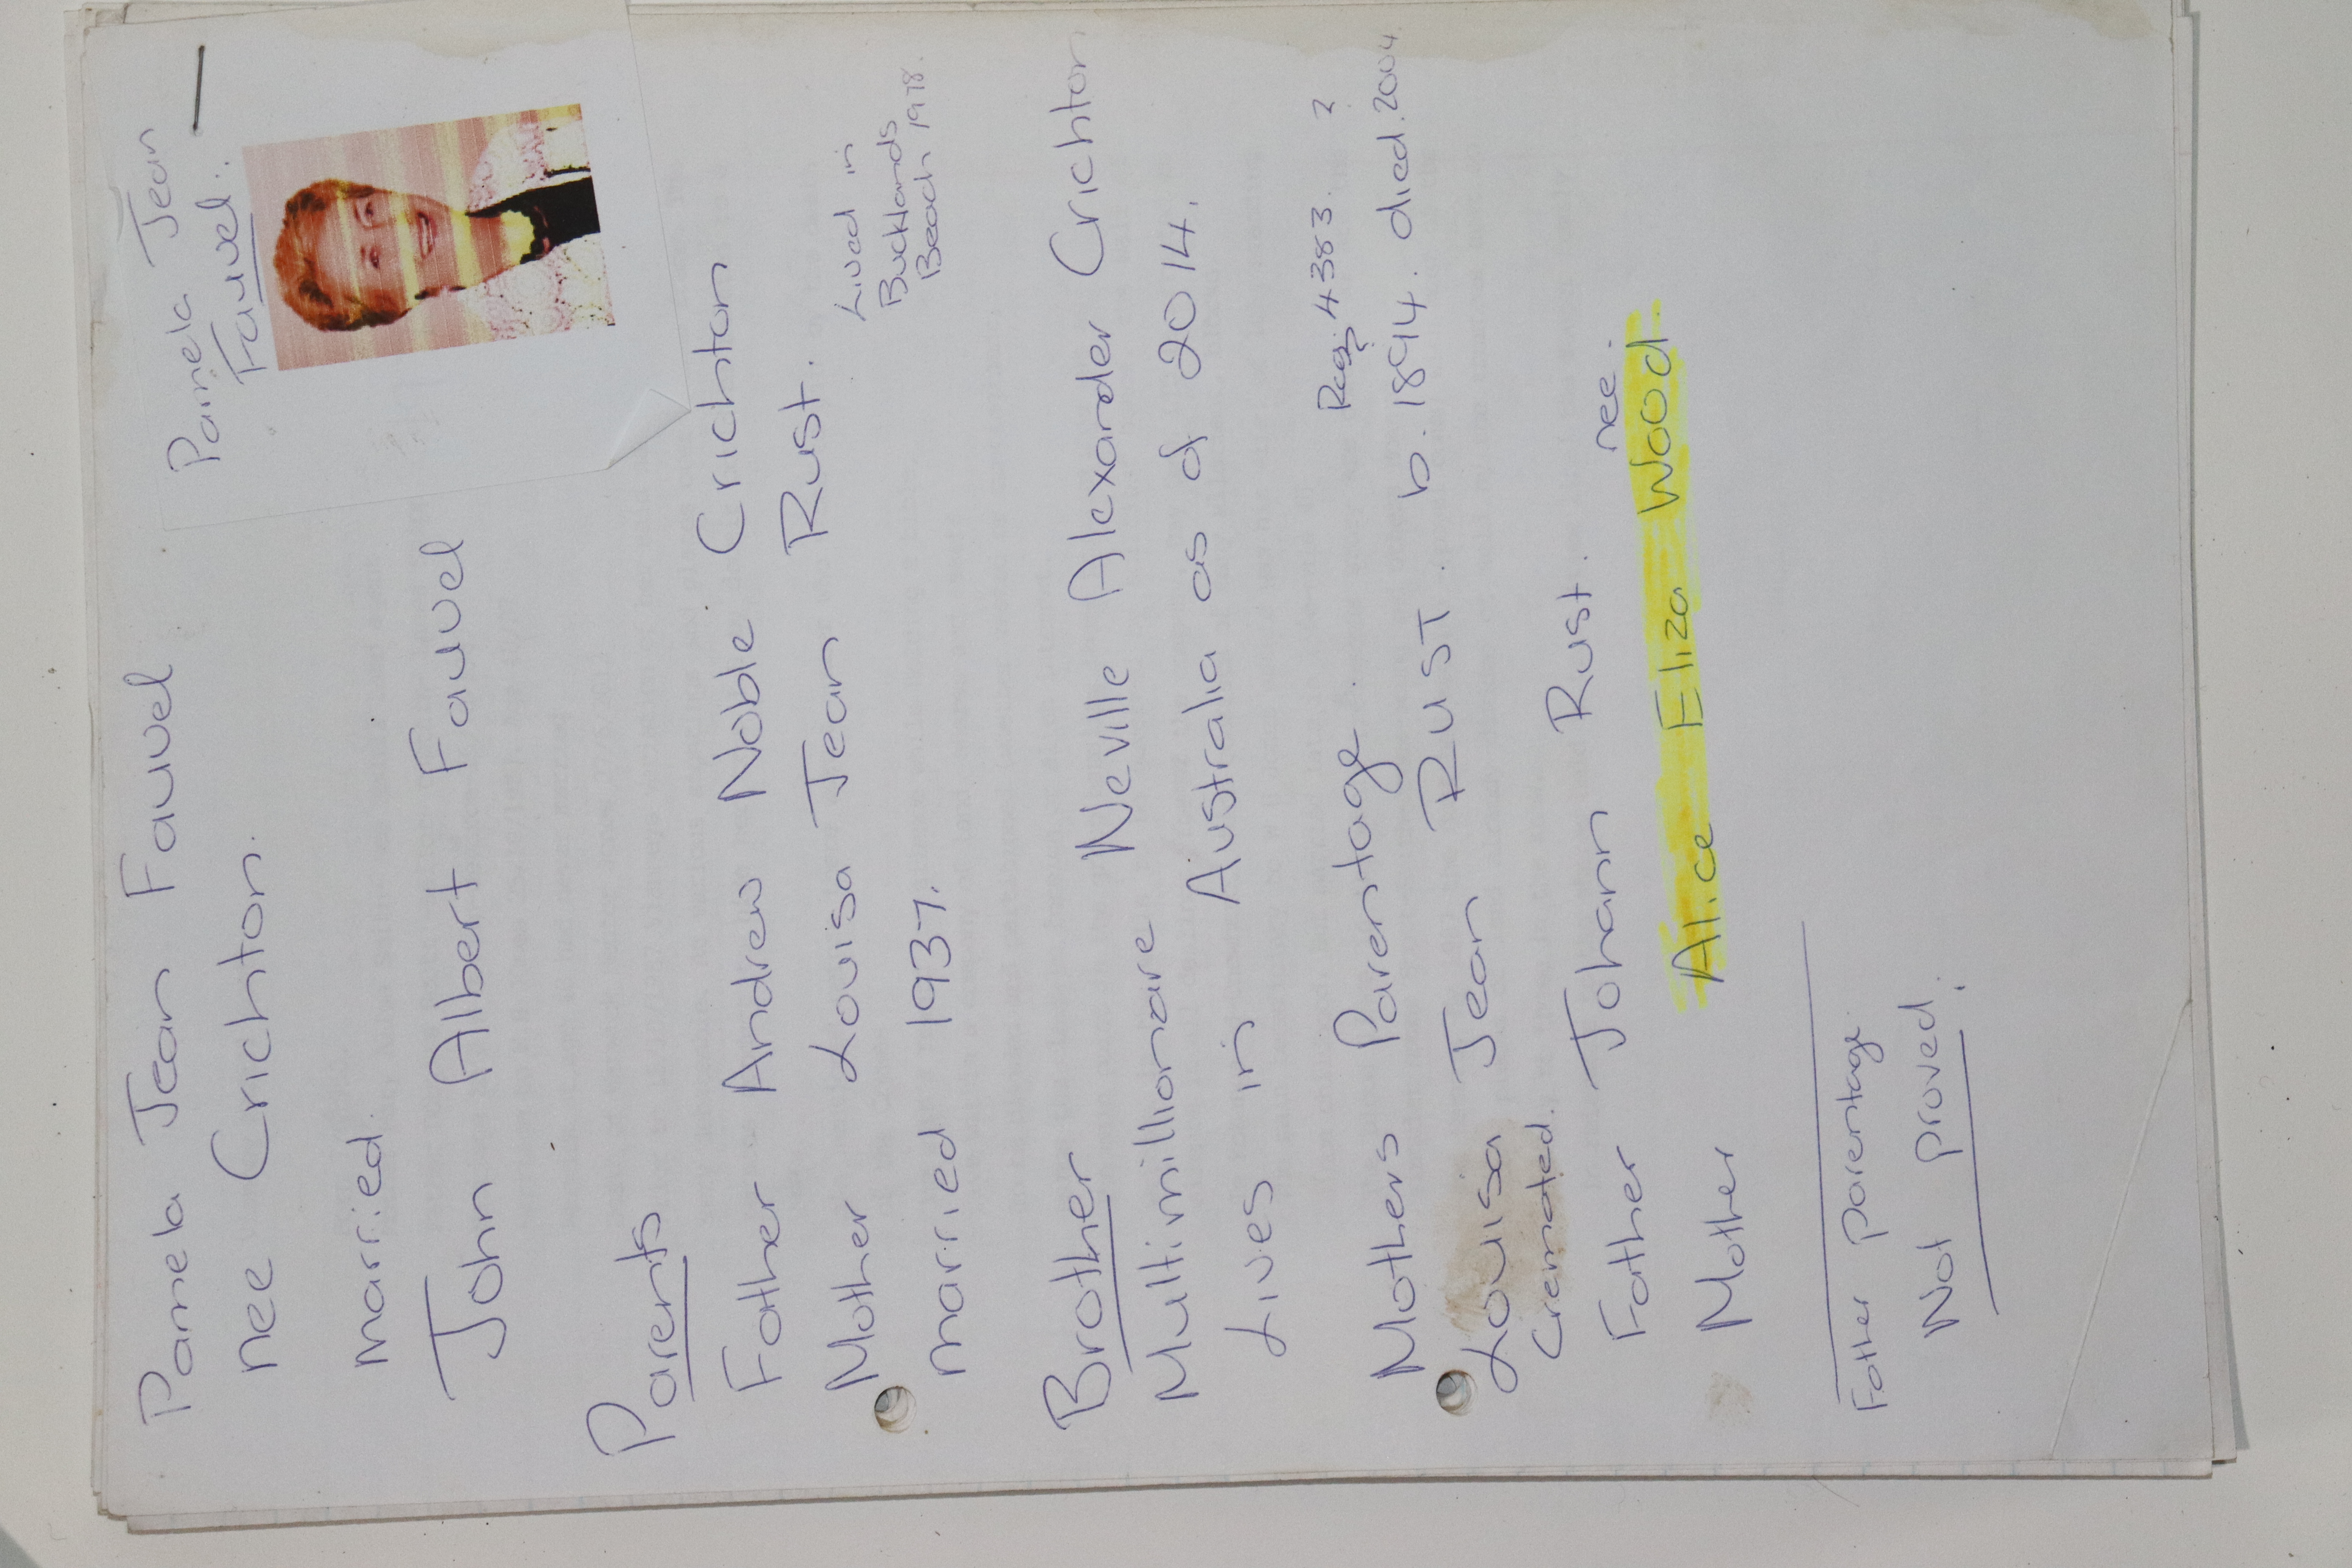 Pamela Jean
Fauvel.
Pamela Jean Fauvel
nee Crichton.
married
John Albert Fauvel
Parents
Father Andrew Noble Crichton
Mother Louisa Jean Rust.
married 1937.
Lived in
Bucklands
Beach 1978.
Brother Neville Alexander Crichton
Multimillionare
Lives in Australia as of 2014.
Mothers Parentage.
Reg. 4383. ?
Louisa Jean RUST. b. 1894. died. 2004.
Cremated.
Father Johann Rust.
nee.
Mother Alice Eliza Wood.
Father parentage.
Not proved.